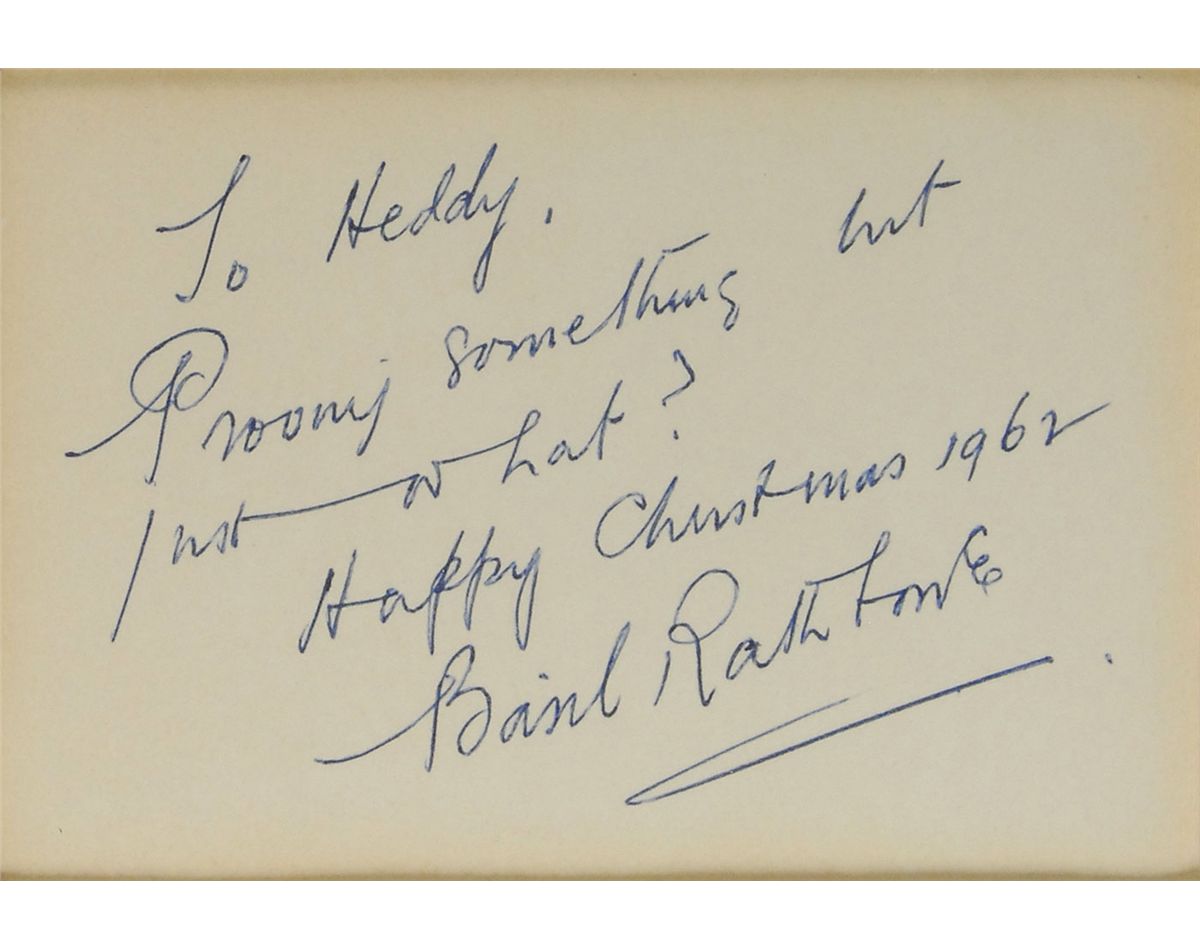 To Heddy.
Proving something but
just what?
Happy Christmas 1962
Basil Rathbone